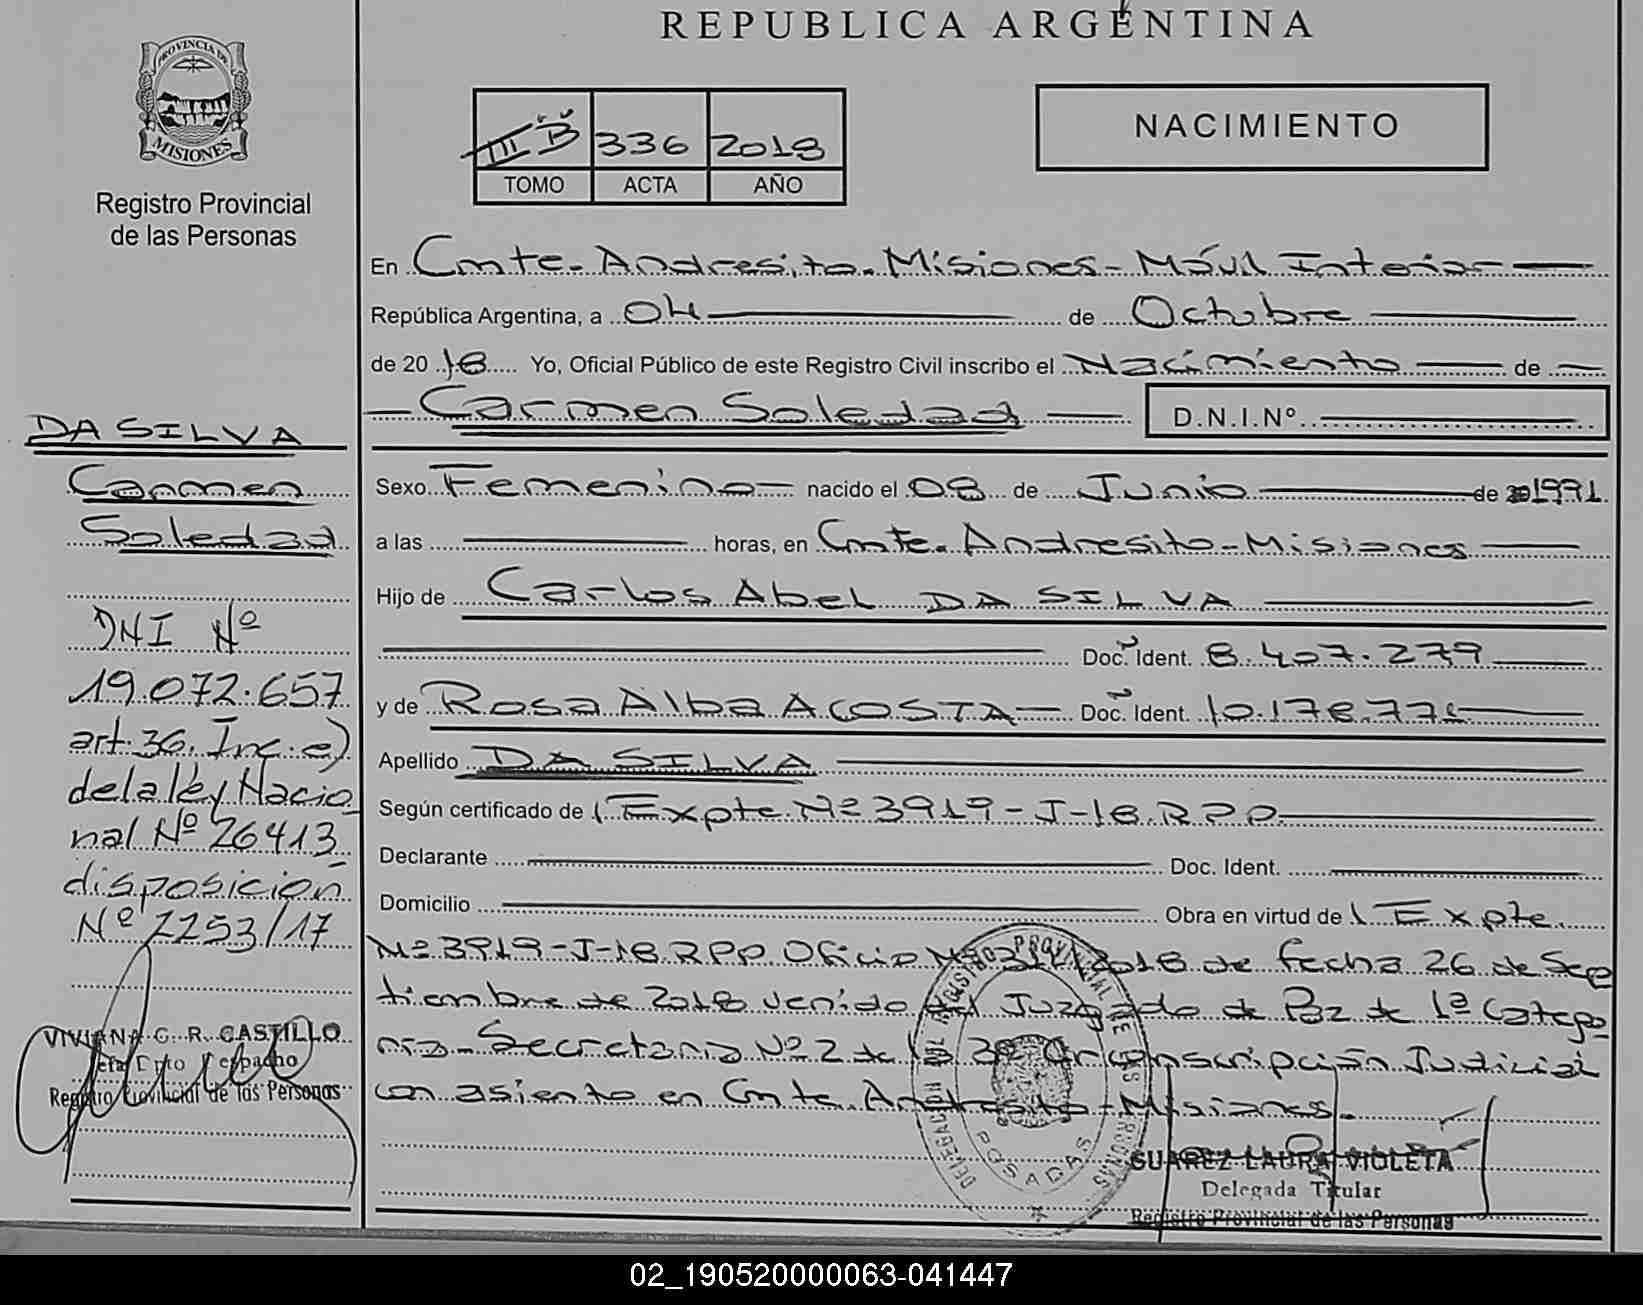 REPUBLICA ARGENTINA
PROVINCIA DE
MISIONES
Registro Provincial
de las Personas
III B 336 2018
TOMO ACTA AÑO
NACIMIENTO
En Cmte. Andresito. Misiones - Móvil Interior
República Argentina, a 04 de Octubre
de 2018 Yo, Oficial Público de este Registro Civil inscribo el Nacimiento de
Carmen Soledad D.N.I.Nº
Sexo Femenino nacido el 08 de Junio de 1991
a las horas, en Cmte. Andresito - Misiones
Hijo de Carlos Abel DA SILVA
Doc. Ident. 8.407.279
y de Rosa Alba ACOSTA Doc. Ident. 10.178.771
Apellido DA SILVA
Según certificado de Expte. Nº 3919-J-18.RPP
Declarante Doc. Ident.
Domicilio Obra en virtud de Expte.
Nº 3919-J-18.RPP Oficio 2018 de fecha 26 de Sep
tiembre de 2018 venido del Juzgado de Paz de 1ª Catego
ria - Secretaria Nº 2 de la 3ª Circunscripción Judicial
con asiento en Cmte. Andresito - Misiones.
DA SILVA
Carmen
Soledad
DNI Nº
19.072.657
art. 36. Inc. e)
de la ley Nacio
nal Nº 26413
disposicion
Nº 2253/17
VIVIANA G. R. CASTILLO
Despacho
Registro Provincial de las Personas
DELEGACION DEL REGISTRO PROVINCIAL DE LAS PERSONAS
POSADAS
SUAREZ LAURA VIOLETA
Delegada Titular
Registro Provincial de las Personas
02_190520000063-041447